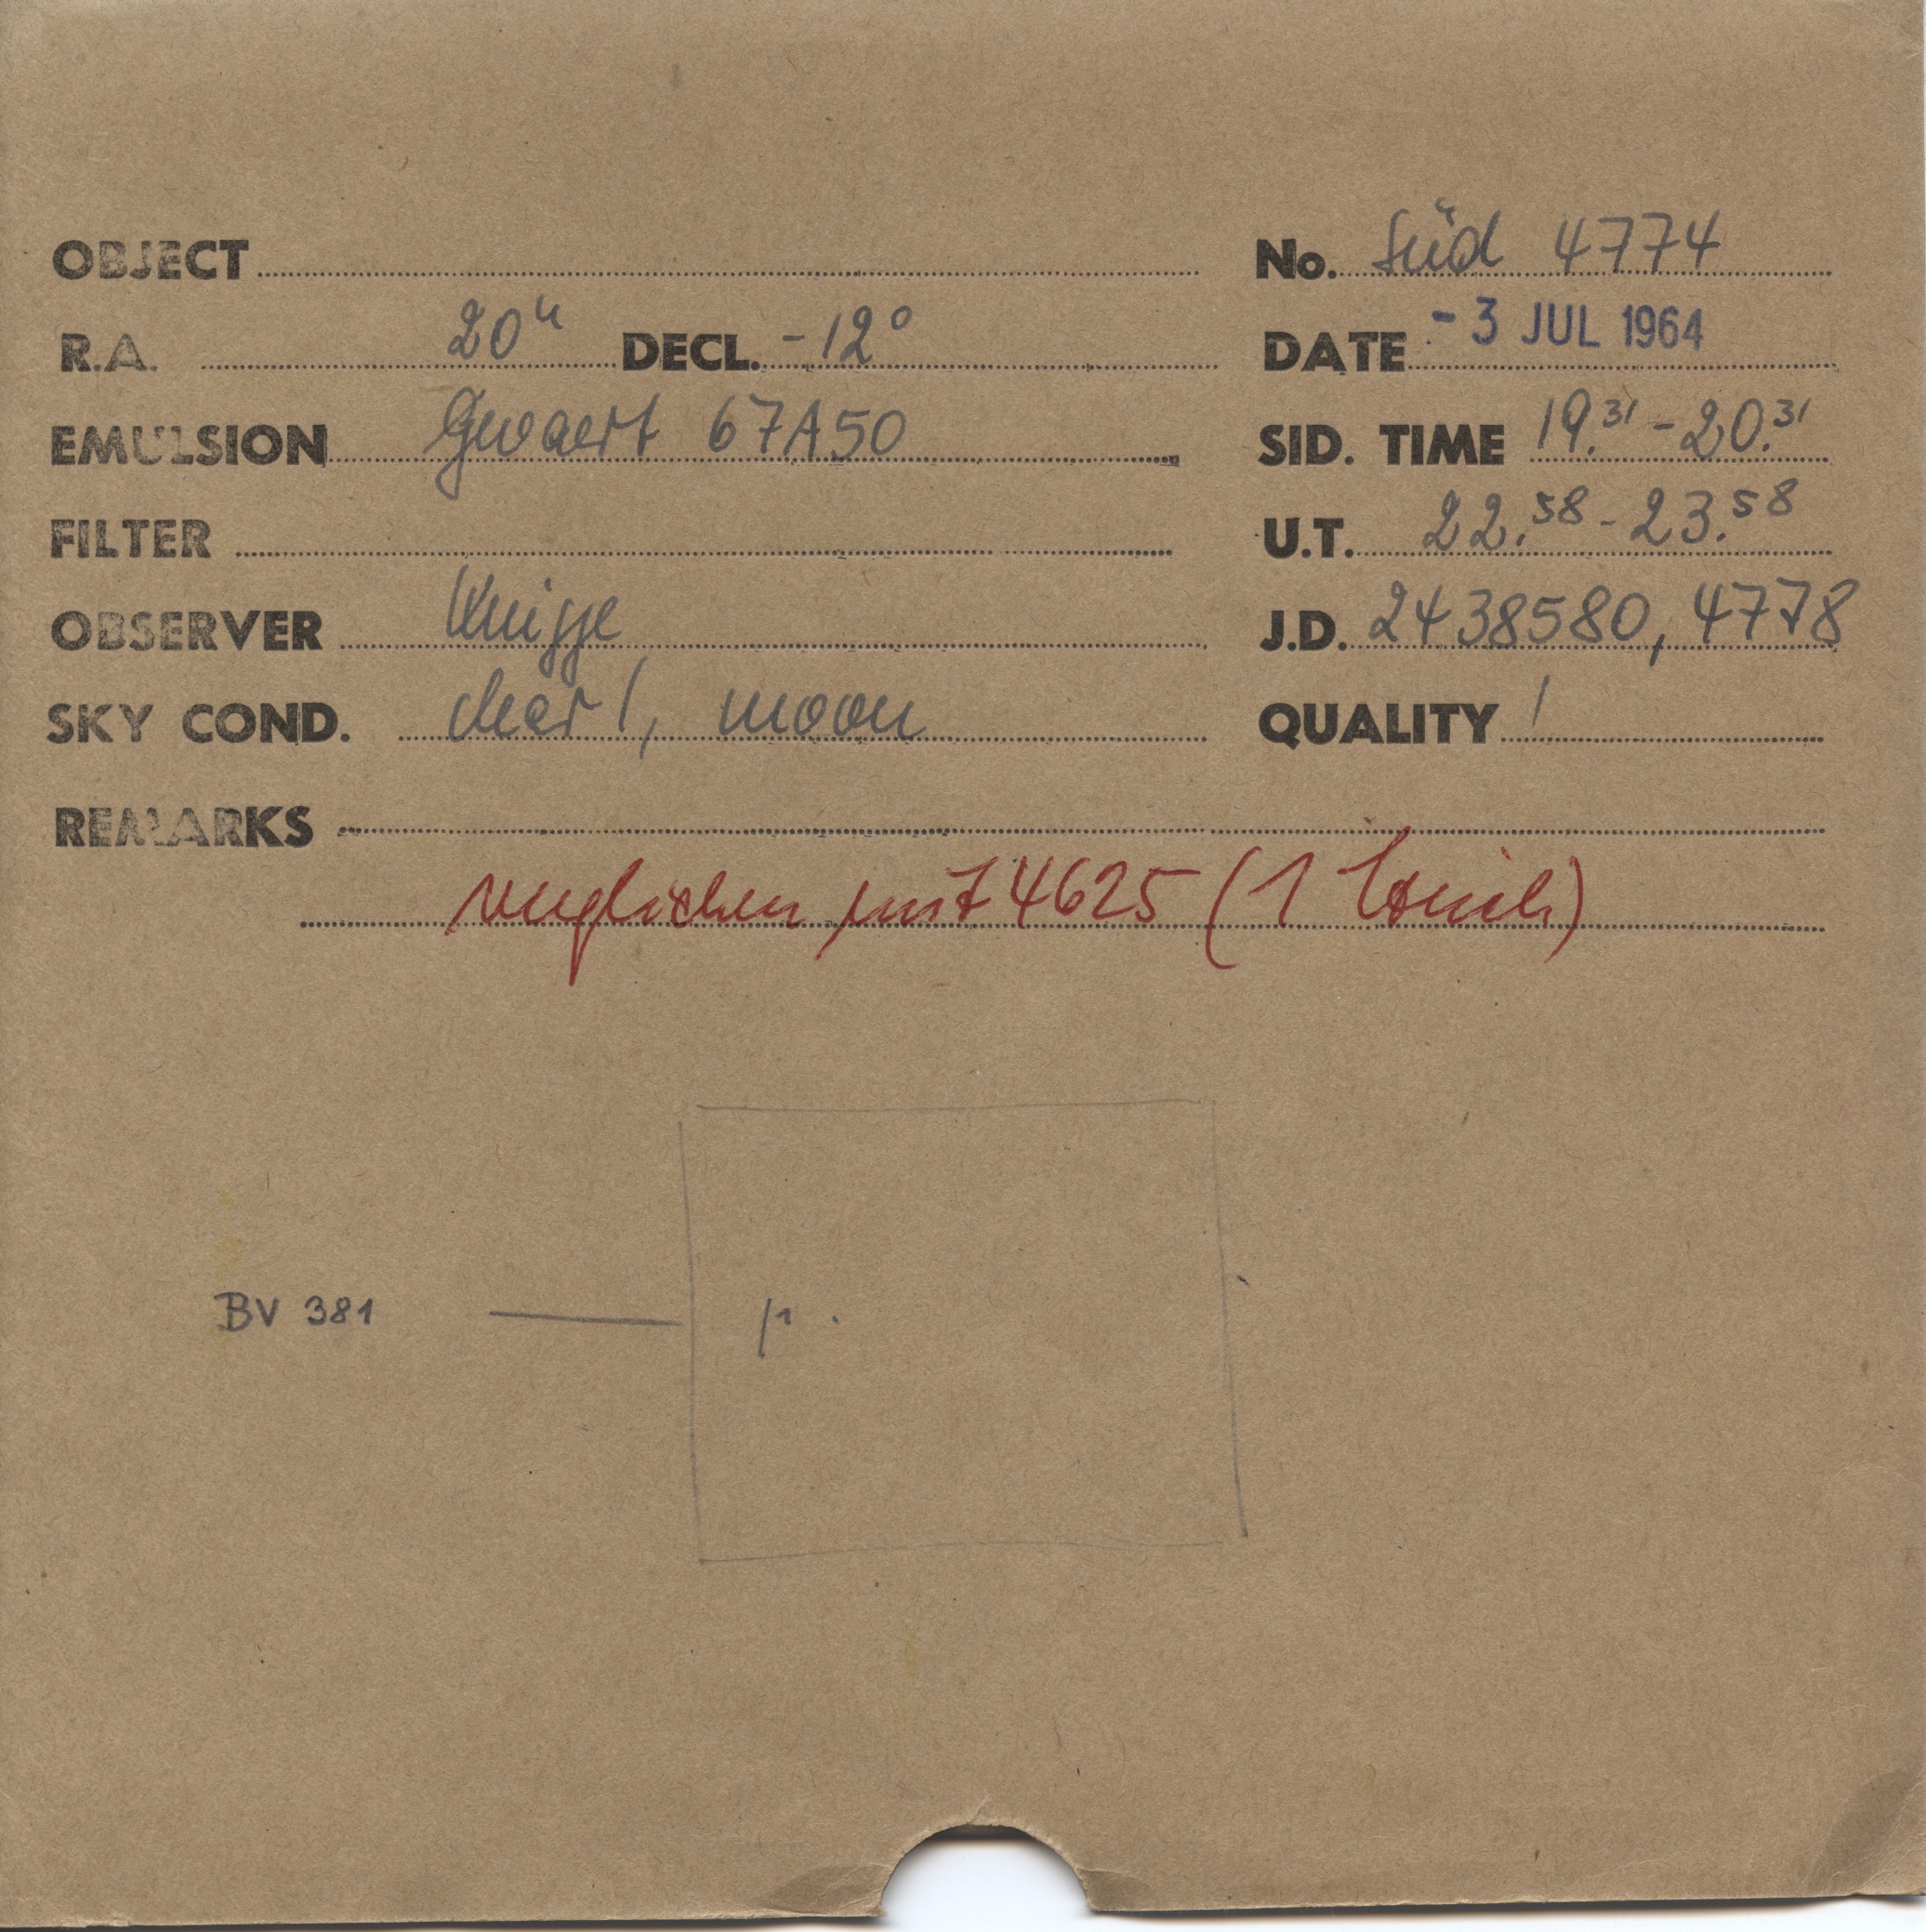 OBJECT No. Süd 4774
R.A. 20h DECL. -12° DATE -3 JUL 1964
EMULSION Gevaert 67A50 SID. TIME 19.31 - 20.31
FILTER U.T. 22.58 - 23.58
OBSERVER Knigge J.D. 2438580,4778
SKY COND. clear 1, moon QUALITY 1
REMARKS
verglichen mit 4625 (1 Strich)
BV 381